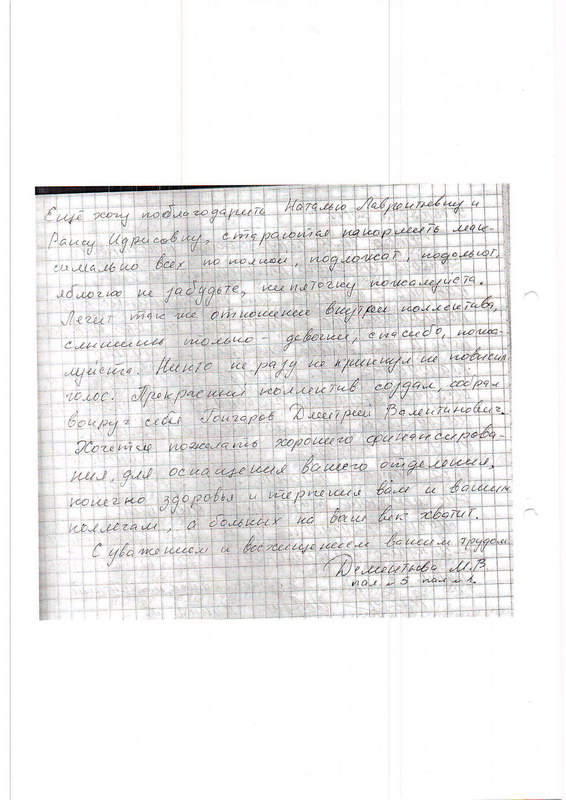 Ещё хочу поблагодарить Наталью Лаврентьевну и
Раису Идрисовну, стараются накормить мак-
симально всех по полной, подложат, подольют,
яблочко не забудьте, кипяточку пожалуйста.
Лечит так же отношение внутри коллектива,
слышишь только - девочки, спасибо, пожа-
луйста. Никто не разу не крикнул не повысил
голос. Прекрасный коллектив создал, собрал
вокруг себя Гончаров Дмитрий Валентинович.
Хочется пожелать хорошего финансирова-
ния, для оснащения вашего отделения,
конечно здоровья и терпения вам и вашим
коллегам, а больных на ваш век хватит.
С уважением и восхищением вашим трудом
Дементьева М.В.
пал 5 пал 1.